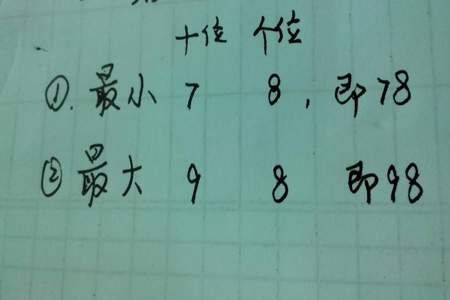 十位 个位
①. 最小 7 8, 即78
② 最大 9 8 即98